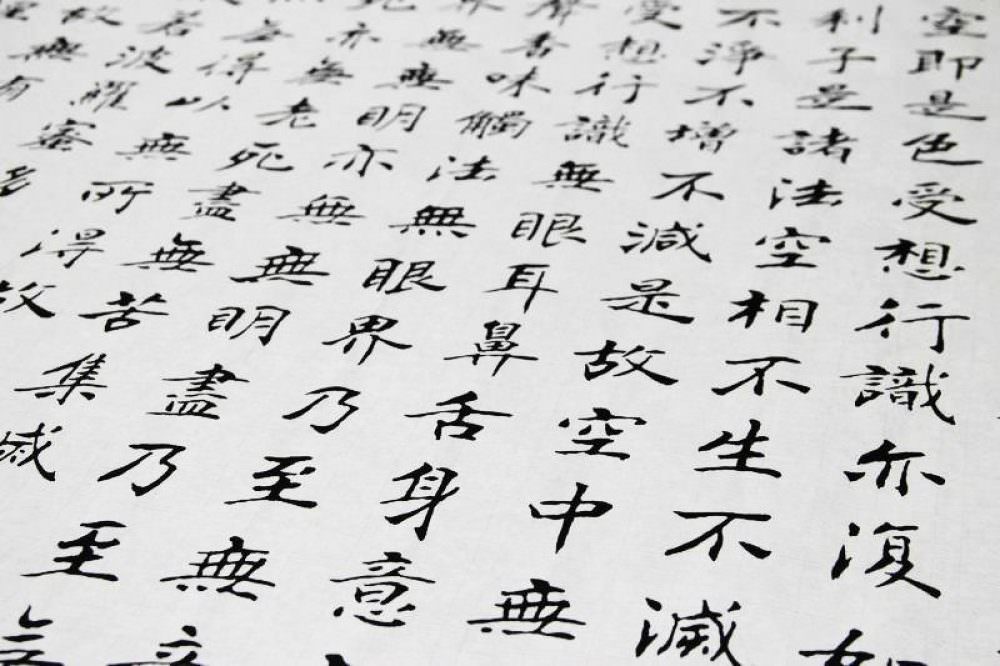 空即是色受想行識亦復如
利子是諸法空相不生不滅
不淨不增不減是故空中無
受想行識無眼耳鼻舌身意
聲香味觸法無眼界乃至無
界無無明亦無無明盡乃至
死亦無老死盡無苦集滅
無得以無所得故
若波羅蜜多
故無有